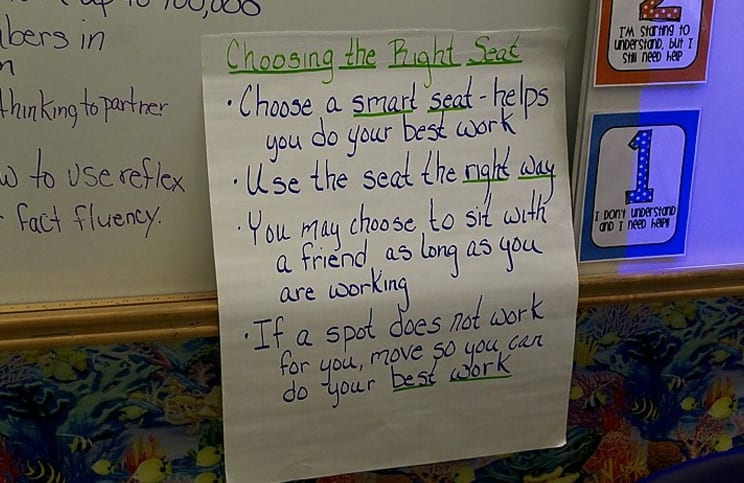 up to 100,000
bers in
thinking to partner
to use reflex
fact fluency.
Choosing the Right Seat
• Choose a smart seat - helps
you do your best work
• Use the seat the right way
• You may choose to sit with
a friend as long as you
are working
• If a spot does not work
for you, move so you can
do your best work
2
I'm starting to
understand, but I
still need help
1
I don't understand
and I need help!